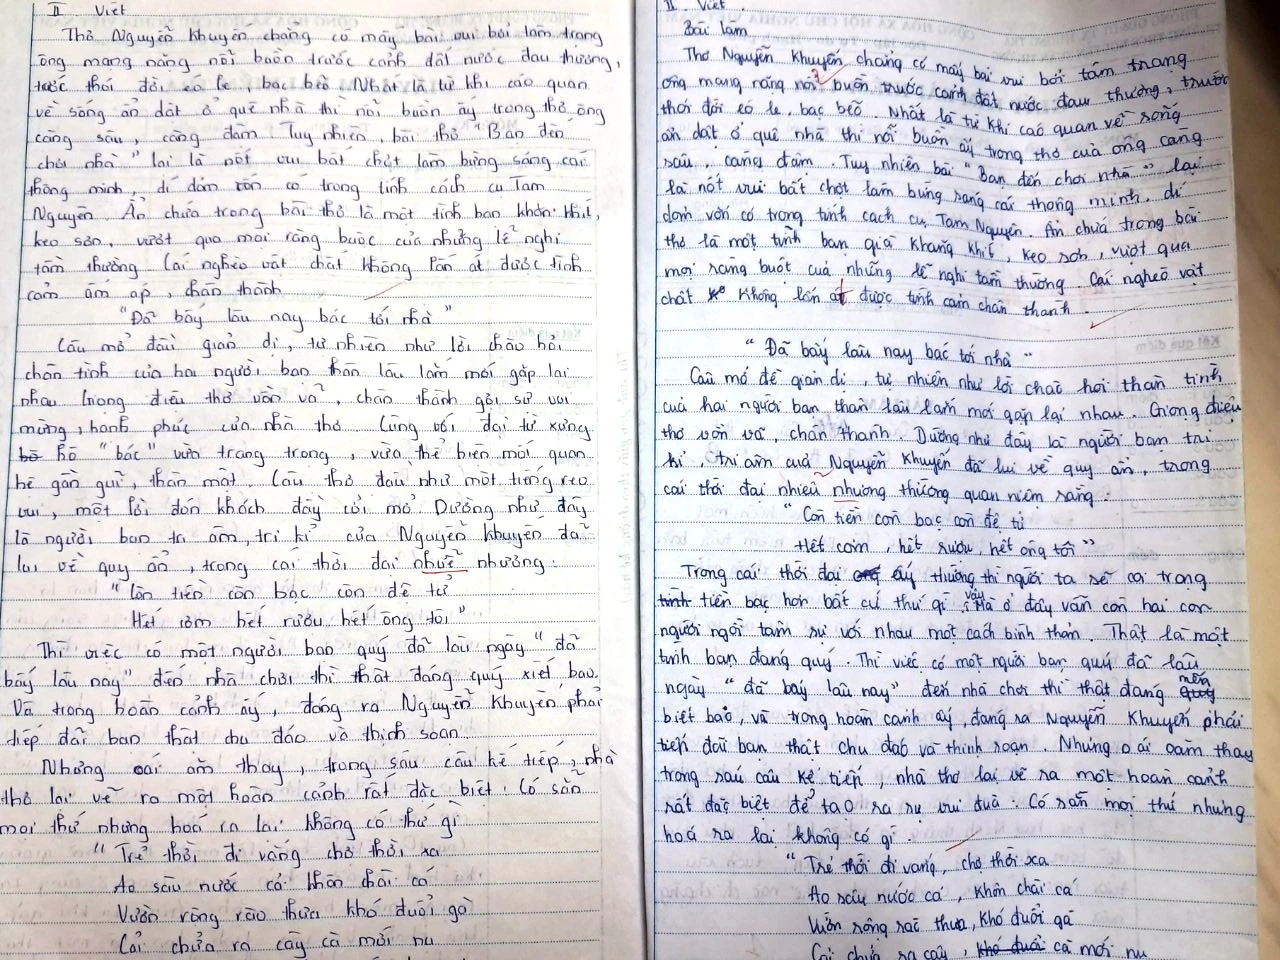 II Viết
Thơ Nguyễn Khuyến chẳng có mấy bài vui bởi tâm trạng
ông mang nặng nỗi buồn trước cảnh đất nước đau thương,
trước thói đời éo le, bạc bẽo Nhất là từ khi cáo quan
về sống ẩn dật ở quê nhà thì nỗi buồn ấy trong thơ ông
càng sâu, càng đậm Tuy nhiên, bài thơ "Bạn đến
chơi nhà" lại là nốt vui bất chợt làm bừng sáng cái
thông minh, dí dỏm vốn có trong tính cách cụ Tam
Nguyên. Ẩn chứa trong bài thơ là một tình bạn khăn khít,
keo sơn, vượt qua mọi ràng buộc của những lễ nghi
tầm thường Cái nghèo vật chất không lấn át được tình
cảm ấm áp, chân thành
"Đã bấy lâu nay bác tới nhà"
Câu mở đầu giản dị, tự nhiên như lời chào hỏi
chân tình của hai người bạn thân lâu lắm mới gặp lại
nhau Giọng điệu thơ vồn vã, chân thành gợi sự vui
mừng, hạnh phúc của nhà thơ Cùng với đại từ xưng
hô "bác" vừa trang trọng, vừa thể hiện mối quan
hệ gần gũi, thân mật. Câu thơ đầu như một tiếng reo
vui, một lời đón khách đầy cởi mở. Dường như đây
là người bạn tri âm, tri kỉ của Nguyễn Khuyến đã
lui về quy ẩn, trong cái thời đại nhuễ nhưỡng:
"Còn tiền còn bạc còn đệ tử
Hết cơm hết rượu hết ông tôi"
Thì việc có một người bạn quý đã lâu ngày "đã
bấy lâu nay" đến nhà chơi thì thật đáng quý xiết bao
Và trong hoàn cảnh ấy, đáng ra Nguyễn Khuyến phải
tiếp đãi bạn thật chu đáo và thịnh soạn
Nhưng oái ăm thay, trong sáu câu kế tiếp, nhà
thơ lại vẽ ra một hoàn cảnh rất đặc biệt: Có sẵn
mọi thứ nhưng hoá ra lại không có thứ gì
"Trẻ thời đi vắng chợ thời xa
Ao sâu nước cả khôn chài cá
Vườn rộng rào thưa khó đuổi gà
Cải chửa ra cây cà mới nụ
II Viết.
Bài làm
Thơ Nguyễn Khuyến chẳng có mấy bài vui bởi tâm trạng
ông mang nặng nỗi buồn trước cảnh đất nước đau thương, trước
thói đời éo le, bạc bẽo. Nhất là từ khi cáo quan về sống
ẩn dật ở quê nhà thì nỗi buồn ấy trong thơ của ông càng
sâu, càng đậm. Tuy nhiên bài "Bạn đến chơi nhà" lại
là nốt vui bất chợt làm bừng sáng cái thông minh, dí
dỏm vốn có trong tính cách cụ Tam Nguyên. Ẩn chứa trong bài
thơ là một tình bạn già khăng khít, keo sơn, vượt qua
mọi ràng buột của những lễ nghi tầm thường. Cái nghèo vật
chất không lấn át được tình cảm chân thành.
"Đã bấy lâu nay bác tới nhà"
Câu mở đề giản dị, tự nhiên như lời chào hỏi thân tình
của hai người bạn thân lâu lắm mới gặp lại nhau. Giọng điệu
thơ vồn vã, chân thành. Dường như đây là người bạn tri
kỉ, tri âm của Nguyễn Khuyến đã lui về quy ẩn, trong
cái thời đại nhiễu nhương thường quan niệm rằng:
"Còn tiền còn bạc còn đệ tử
Hết cơm, hết rượu, hết ông tôi"
Trong cái thời đại ấy thường thì người ta sẽ coi trọng
tiền bạc hơn bất cứ thứ gì vậy mà ở đây vẫn còn hai con
người ngồi tâm sự với nhau một cách bình thản. Thật là một
tình bạn đáng quý. Thì việc có một người bạn quý đã lâu
ngày "đã bấy lâu nay" đến nhà chơi thì thật đáng mến
biết bao, và trong hoàn cảnh ấy, đáng ra Nguyễn Khuyến phải
tiến đãi bạn thật chu đáo và thịnh soạn. Nhưng oái oăm thay
trong sáu câu kế tiếp, nhà thơ lại vẽ ra một hoàn cảnh
rất đặc biệt để tạo ra sự vui đùa: Có sẵn mọi thứ nhưng
hoá ra lại không có gì.
"Trẻ thời đi vắng, chợ thời xa
Ao sâu nước cả, khôn chài cá
Vườn rộng rào thưa, khó đuổi gà
Cải chửa ra cây, khó đuổi cà mới nụ